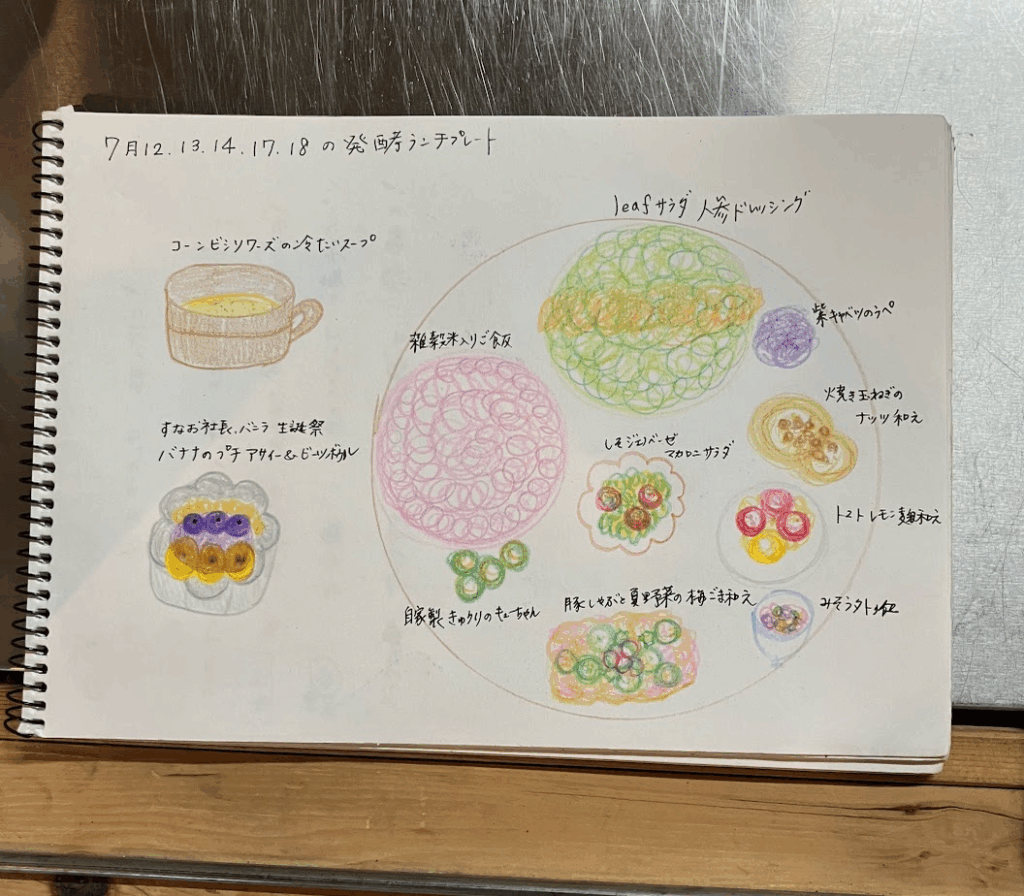 7月12.13.14.17.18の発酵ランチプレート
leafサラダ 人参ドレッシング
コーンビシソワーズの冷たいスープ
紫キャベツのラペ
雑穀米入りご飯
焼き玉ねぎの
ナッツ和え
すなお社長、バニラ 生誕祭
バナナのプチ アサイー&ビーツボウル
しそジェノベーゼ
マカロニサラダ
トマトレモン麹和え
豚しゃぶと夏野菜の梅ごま和え
自家製きゅうりのキューちゃん